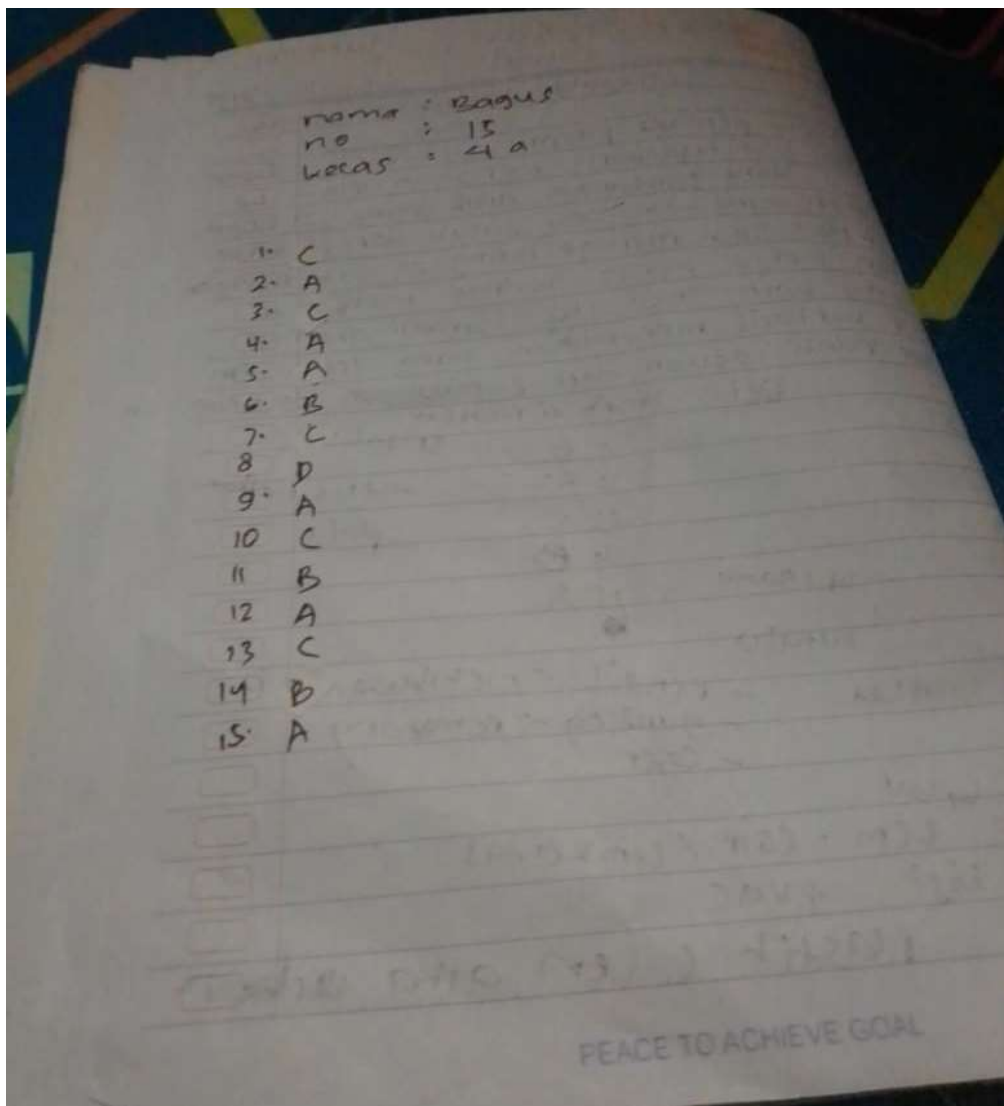 nama : Bagus
no : 15
kecas : 4 a
1. C
2. A
3. C
4. A
5. A
6. B
7. C
8 D
9. A
10 C
11 B
12 A
13 C
14 B
15. A
PEACE TO ACHIEVE GOAL